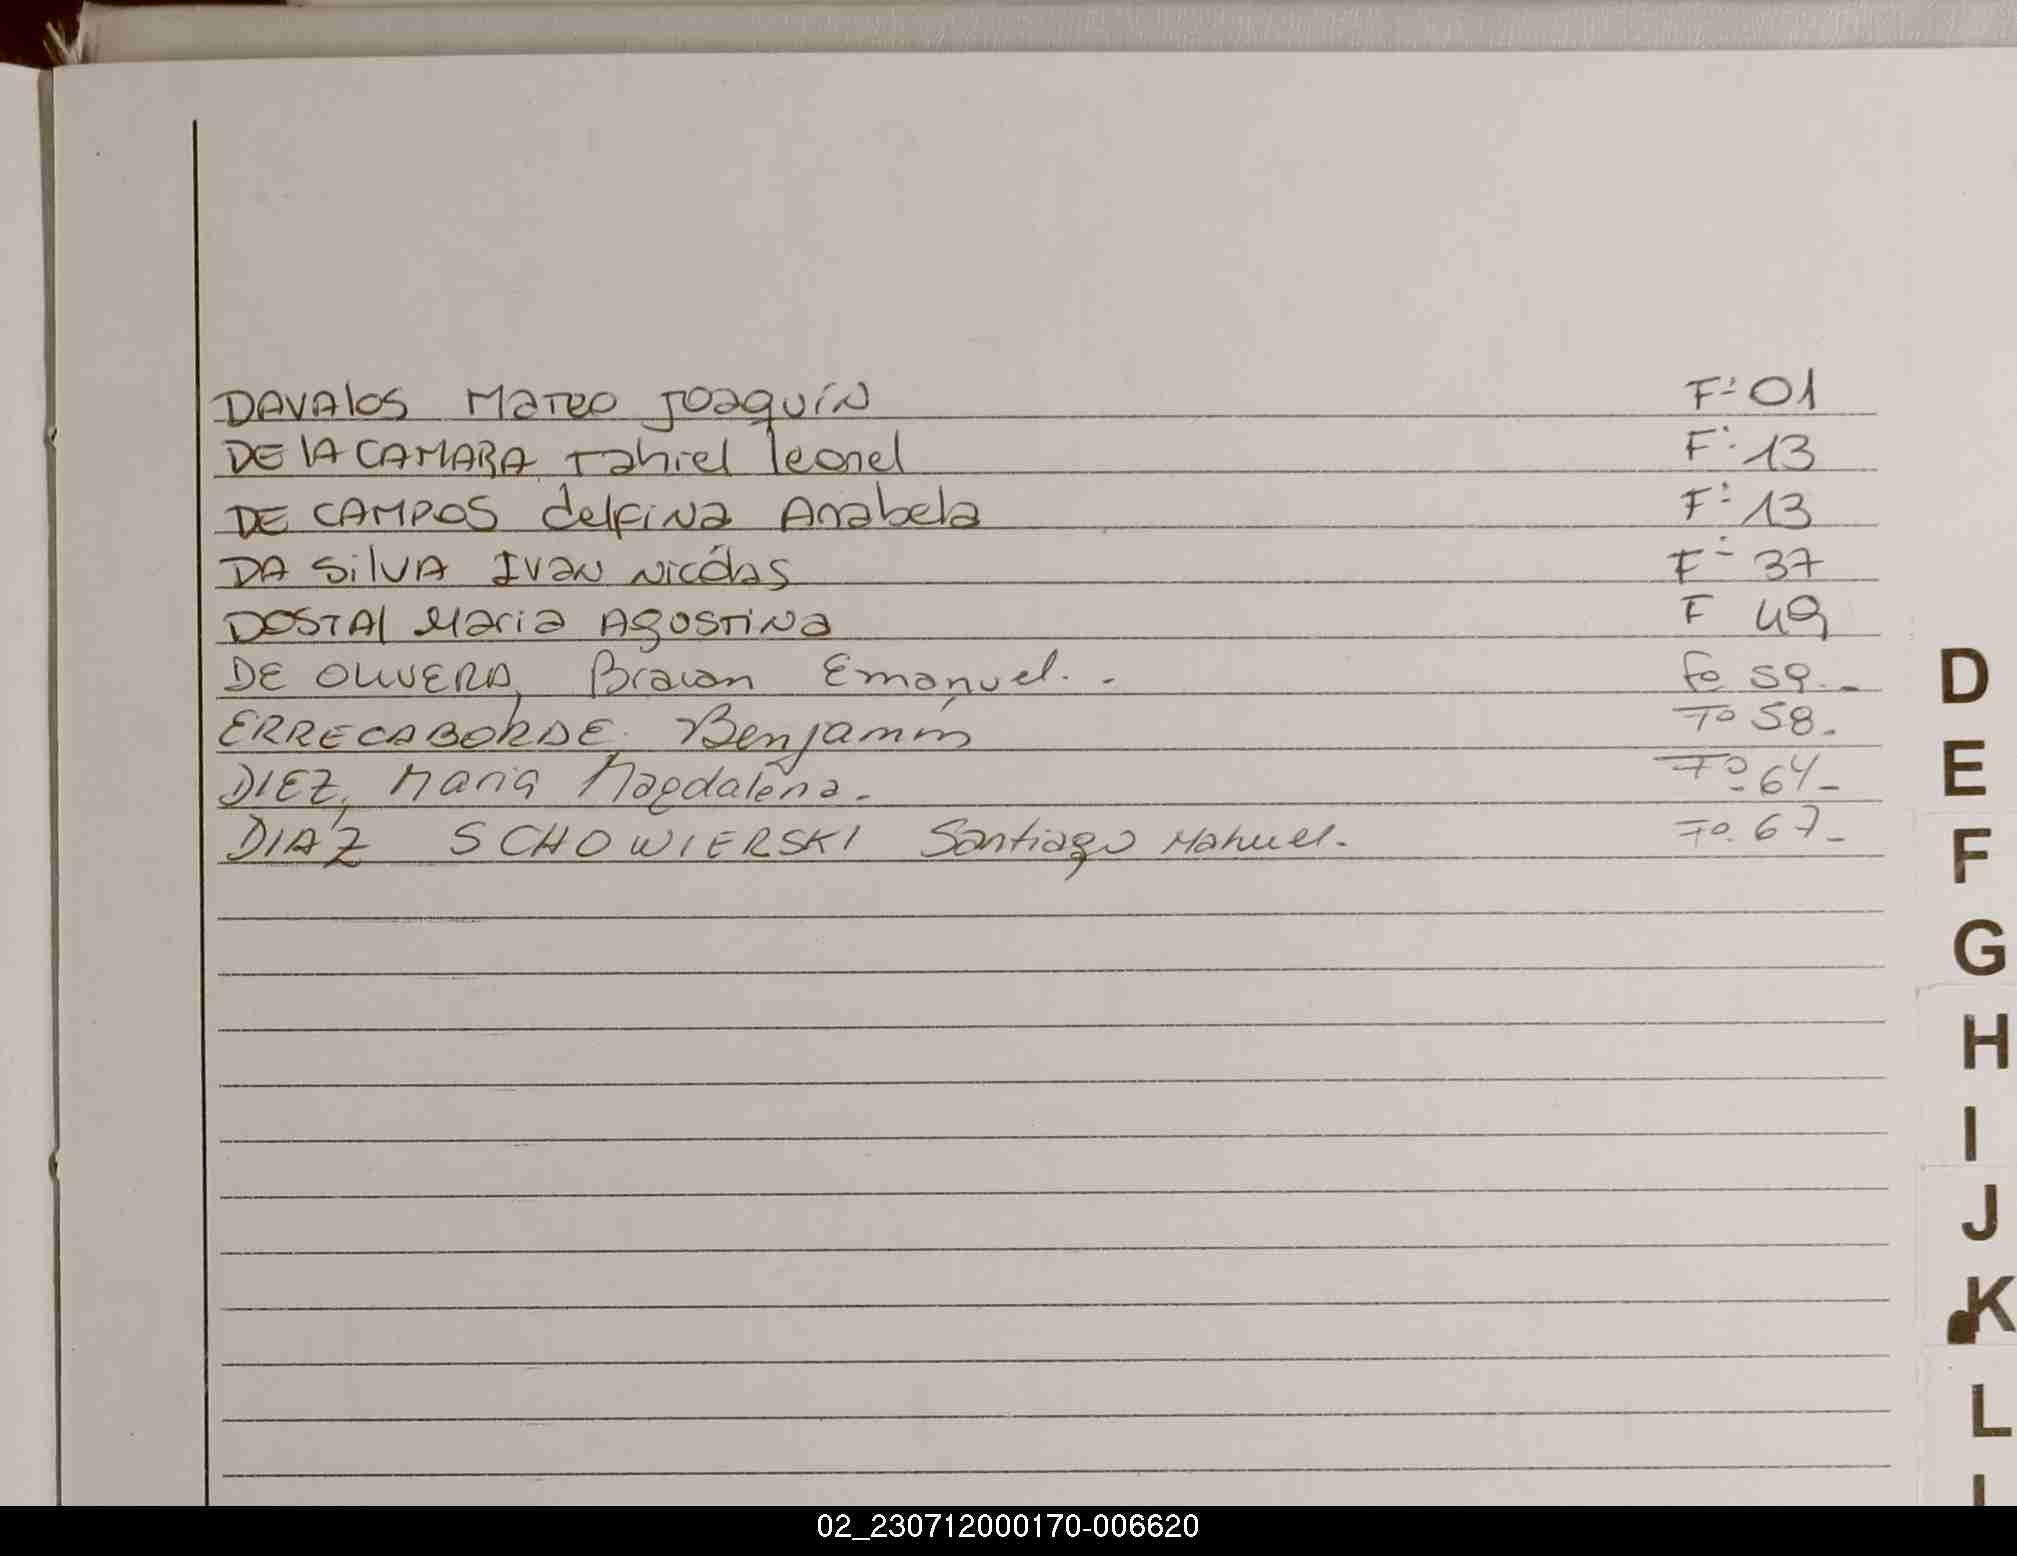 DAVAlOS Mateo Joaquín F: 01
DE lA CAMARA Tahiel leonel F: 13
DE CAMPOS delfina Anabela F: 13
DA SilVA Ivan Nicólas F: 37
DOSTAl Maria Agostina F 49
DE OLIVERA, Braian Emanuel. - Fo 59.-
ERRECABORDE Benjamín Fo 58.
DIEZ, Maria Magdalena.- Fo. 64-
DIAZ SCHOWIERSKI Santiago Manuel.- Fo. 67-
D
E
F
G
H
I
J
K
L
02_230712000170-006620